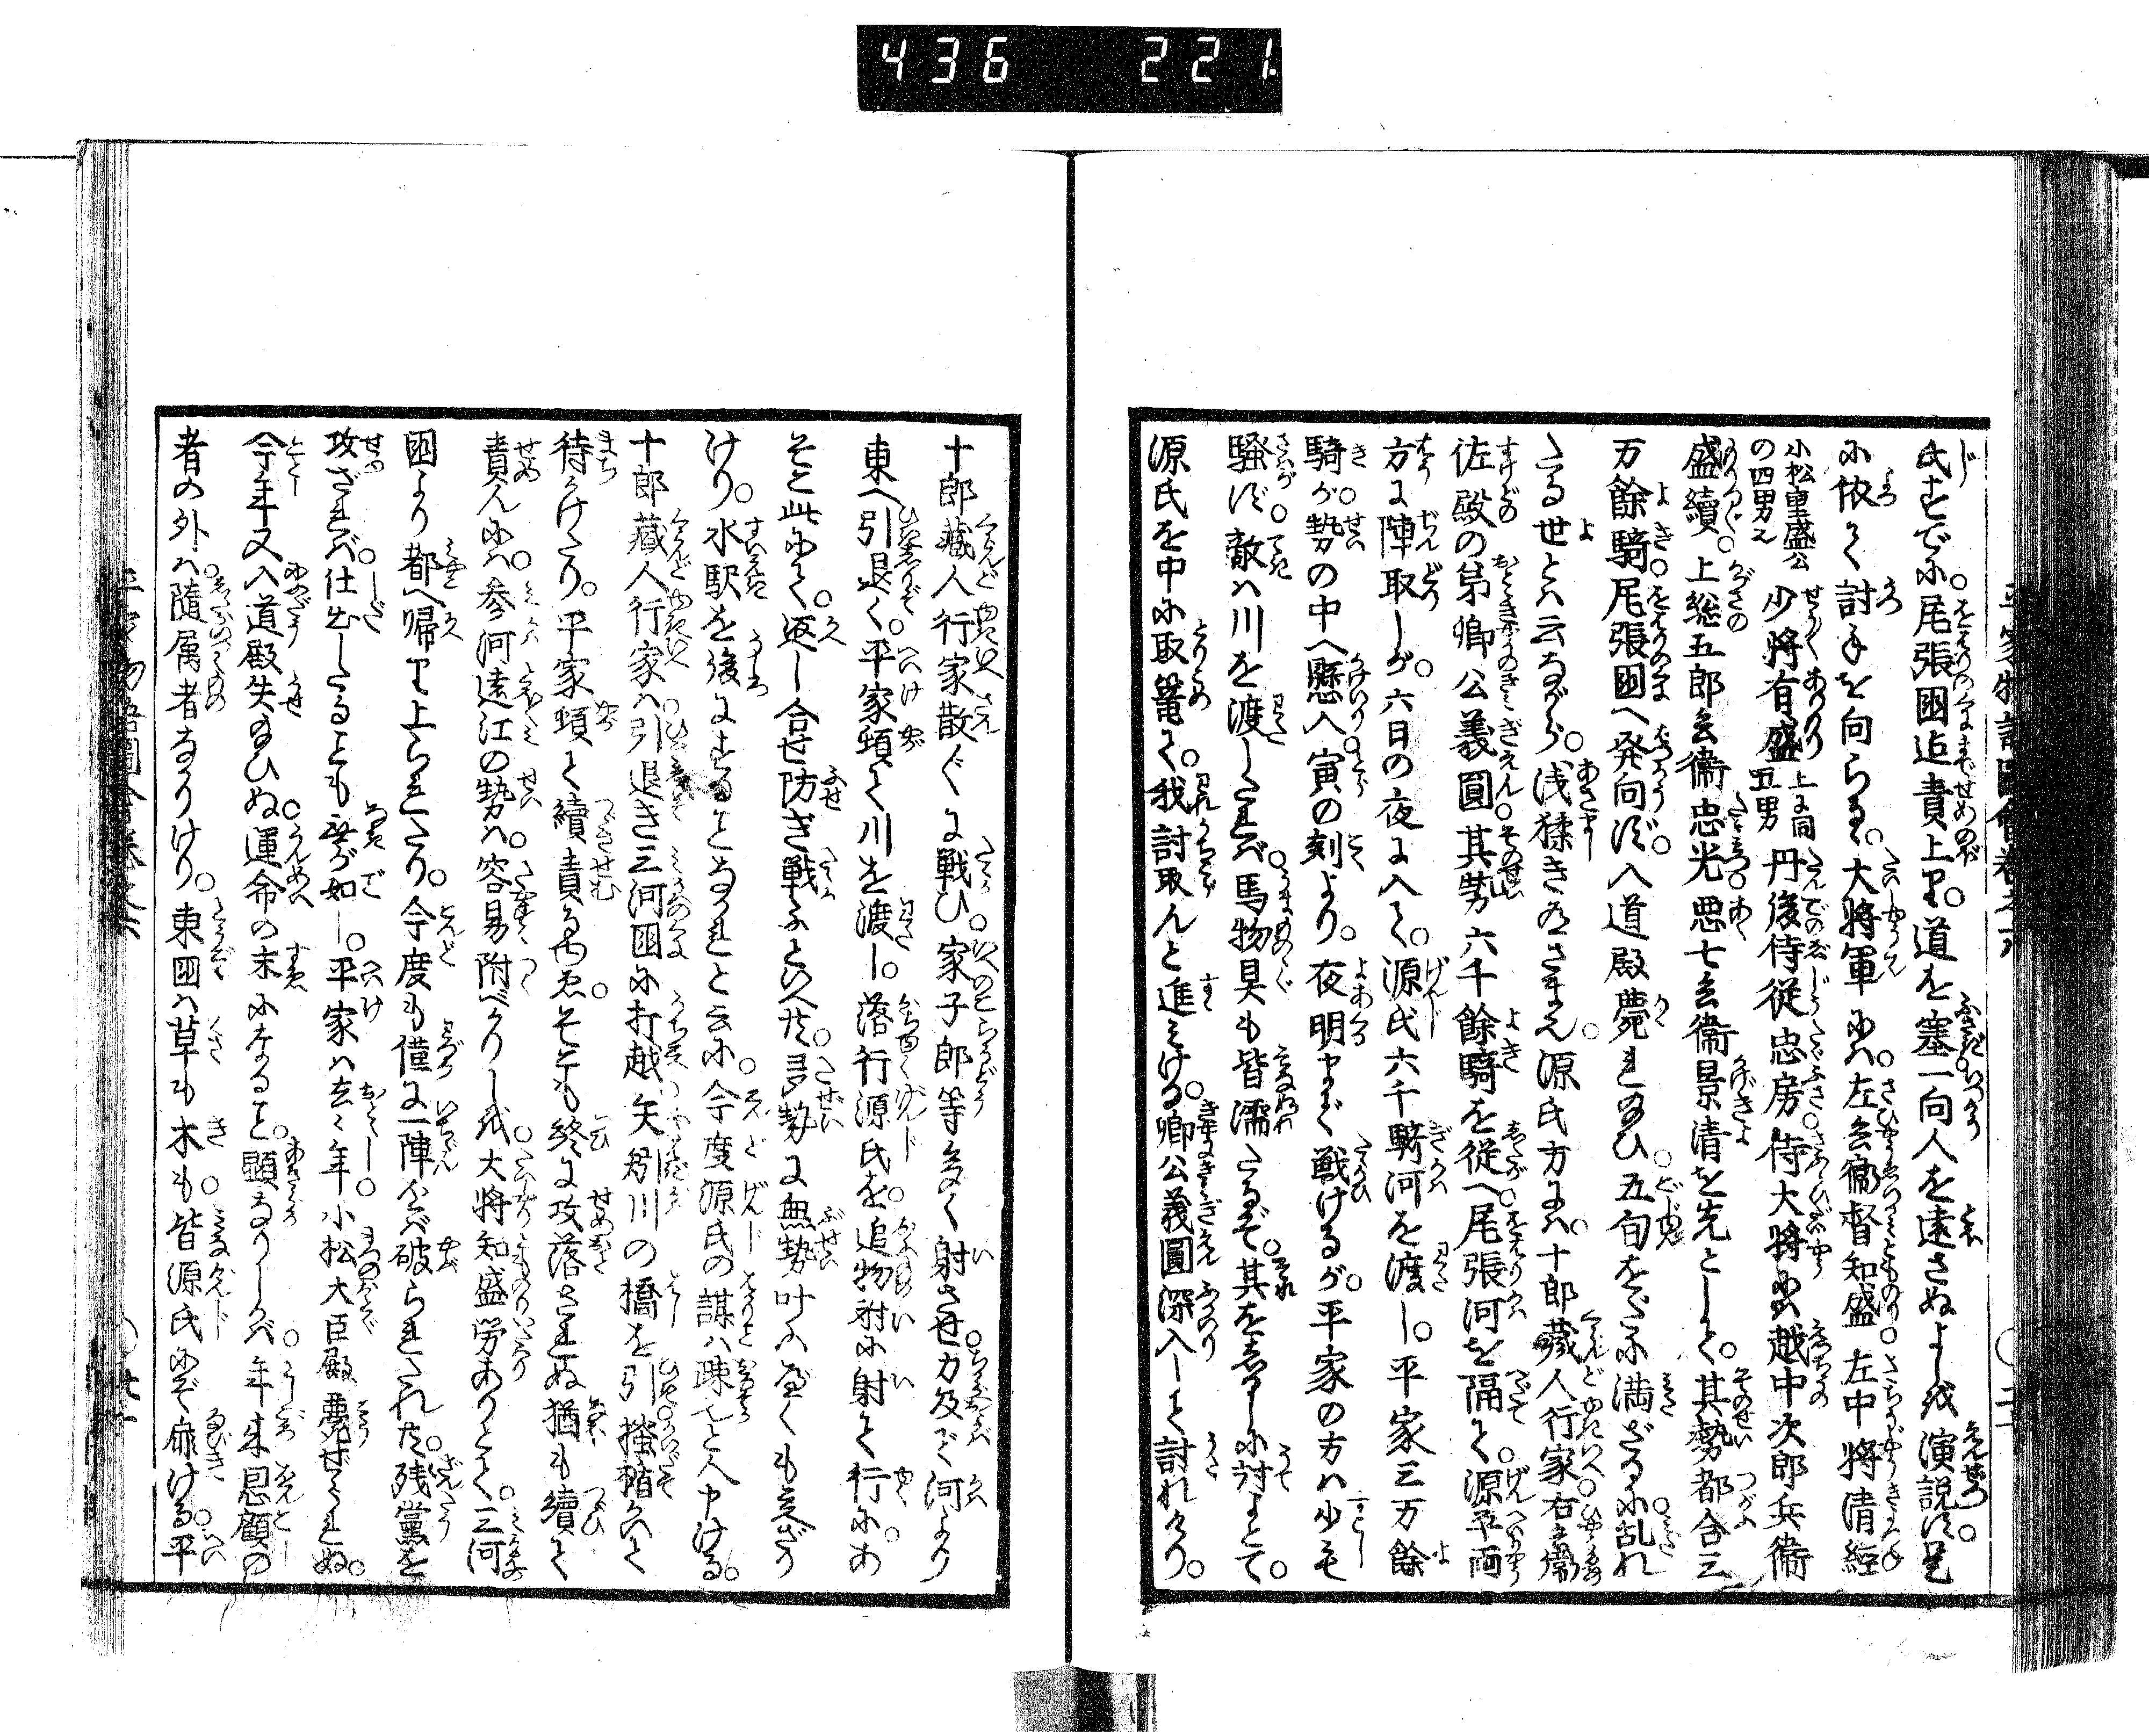 436 221
氏すでに。尾張国迄責上り。道を塞一向人を通さぬよし演説す。是
に依て討手を向らる。大将軍には。左兵衛督知盛。左中将清経
小松重盛公の四男也 少将有盛 上に同五男 丹後侍従忠房。侍大将には越中次郎兵衛
盛續。上総五郎兵衛忠光。悪七兵衛景清を先として。其勢都合三
万餘騎。尾張国へ発向す。入道殿薨れ給ひ。五旬をだに満ざるに。乱れ
たる世とは云ながら。浅猿き有さまなり。源氏方には。十郎蔵人行家。右兵衛
佐殿の弟卿公義圓。其勢六千餘騎を従へ。尾張河を隔て。源平両
方に陣取しが。六日の夜に入て。源氏六千騎河を渡し。平家三万餘
騎が。勢の中へ懸入。寅の刻より。夜明まで戦けるが。平家の方は少も
騒ず。敵は川を渡したれば。馬物具も皆濡たるぞ。其をしるしに討よとて。
源氏を中に取篭て。我討取んと進みける。卿公義圓深入して討れけり。
十郎蔵人行家散々に戦ひ。家子郎等多く射させ。力及で河より
東へ引退く。平家頓て川を渡し。落行源氏を追物射に射て行に。あ
そこ此にて。返し合せ防ぎ戦ふといへ共。多勢に無勢叶ふべくも見ざり
けり。水駅を後にすることなかれと云に。今度源氏の謀は疎也と人申ける。
十郎蔵人行家は。引退き三河国に打越。矢矧川の橋を引。掻楯かいて
待かけたり。平家頓て續責給ふゆゑ。そこも終に攻落されぬ。猶も續て
責んには。参河遠江の勢は。容易附べかりしに。大将知盛労ありとて。三河
国より都へ帰り上られたり。今度も僅に一陣をば破られたれ共。残黨を
攻ざれば。仕出したることも無が如し。平家は去々年小松大臣殿薨ぜられぬ。
今年又入道殿失給ひぬ。運命の末になること。顕なりしかば。年来恩顧の
者の外は。隨属者なかりけり。東国は草も木も。皆源氏にぞ靡ける。平